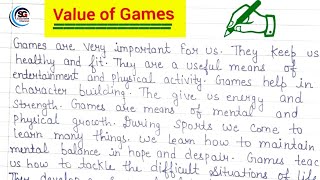 SG
Value of Games
Games are very important for us. They keep us
healthy and fit. They are a useful means of
entertainment and physical activity. Games help in
character building. The give us energy and
strength. Games are means of mental and
physical growth. During sports we come to
learn many things. we learn how to maintain
mental balance in hope and despair. Games teac
us how to tackle the difficult situations of life
They develop